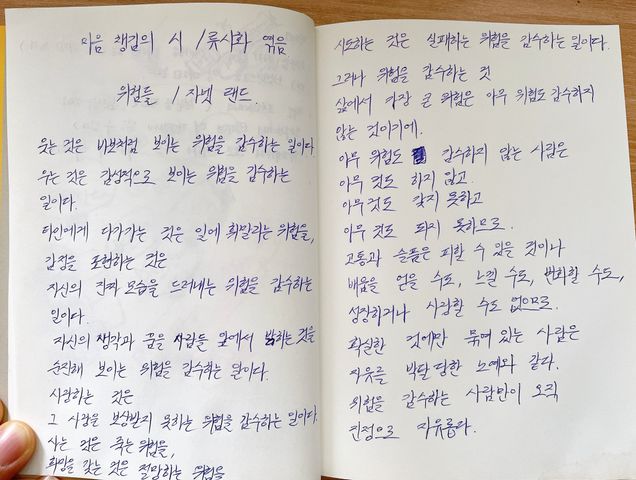 마음 챙김의 시 / 류시화 엮음
위험들 / 자넷 랜드
웃는 것은 바보처럼 보이는 위험을 감수하는 일이다.
우는 것은 감상적으로 보이는 위험을 감수하는
일이다.
타인에게 다가가는 것은 일에 휘말리는 위험을,
감정을 표현하는 것은
자신의 진짜 모습을 드러내는 위험을 감수하는
일이다.
자신의 생각과 꿈을 사람들 앞에서 밝히는 것은
순진해 보이는 위험을 감수하는 일이다.
사랑하는 것은
그 사랑을 보상받지 못하는 위험을 감수하는 일이다.
사는 것은 죽는 위험을,
희망을 갖는 것은 절망하는 위험을
시도하는 것은 실패하는 위험을 감수하는 일이다.
그러나 위험을 감수하는 것
삶에서 가장 큰 위험은 아무 위험도 감수하지
않는 것이기에.
아무 위험도 감수하지 않는 사람은
아무 것도 하지 않고.
아무 것도 갖지 못하고
아무 것도 되지 못하므로.
고통과 슬픔은 피할 수 있을 것이나
배움을 얻을 수도, 느낄 수도, 변화할 수도,
성장하거나 사랑할 수도 없으므로.
확실한 것에만 묶여 있는 사람은
자유를 박탈 당한 노예와 같다.
위험을 감수하는 사람만이 오직
진정으로 자유롭다.